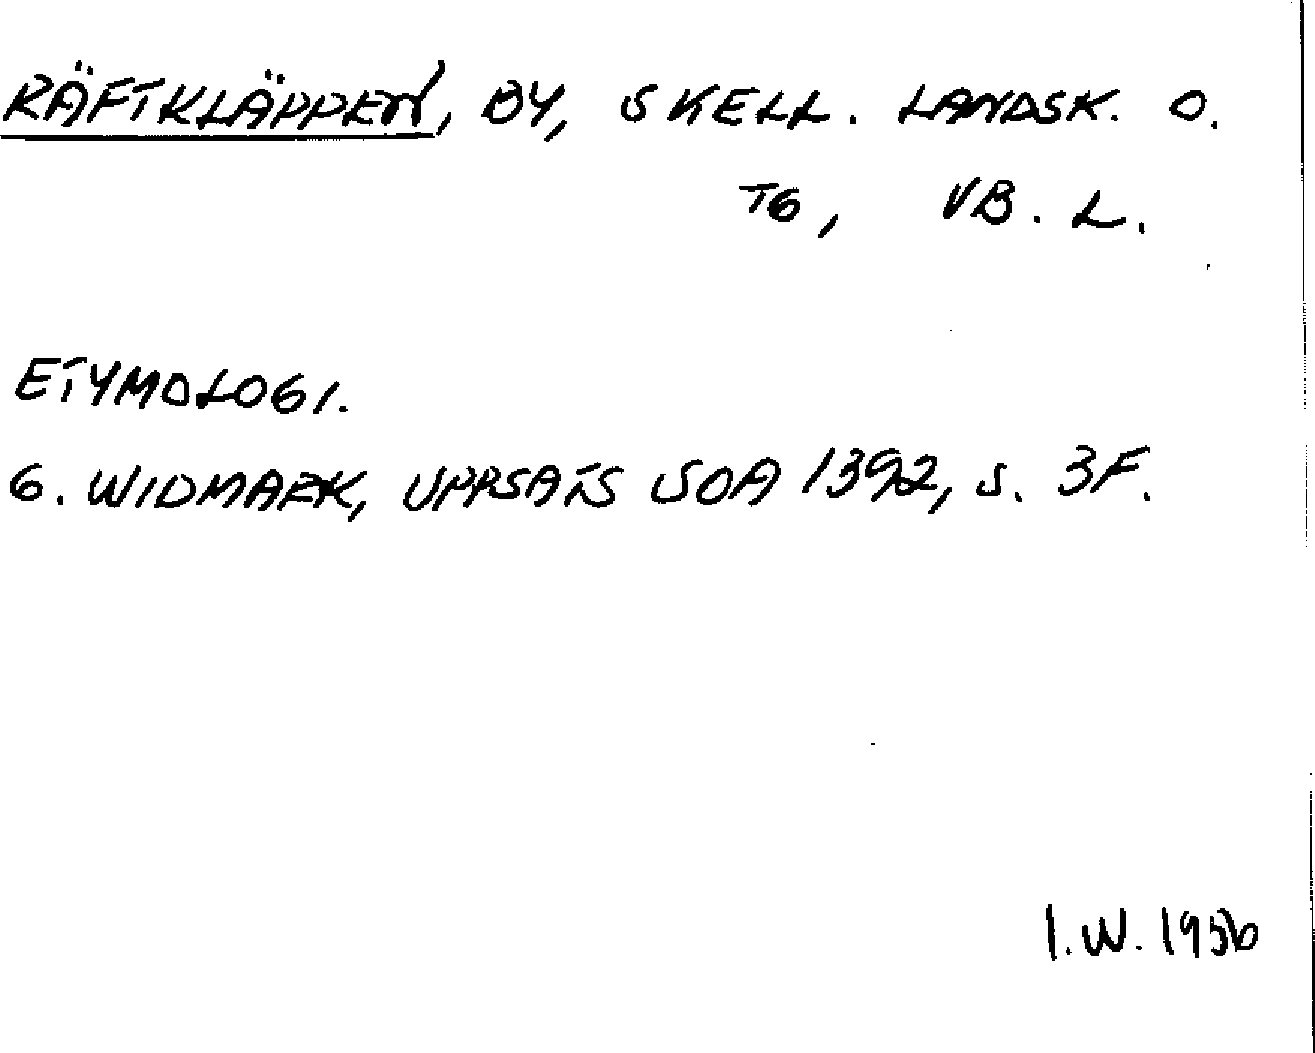 RÄFTKLÄPPEN, BY, SKELL. LANDSK. O.
TG, VB. L.
ETYMOLOGI.
G. WIDMARK, UPPSATS SOA 1392, S. 3F.
I.W. 1956